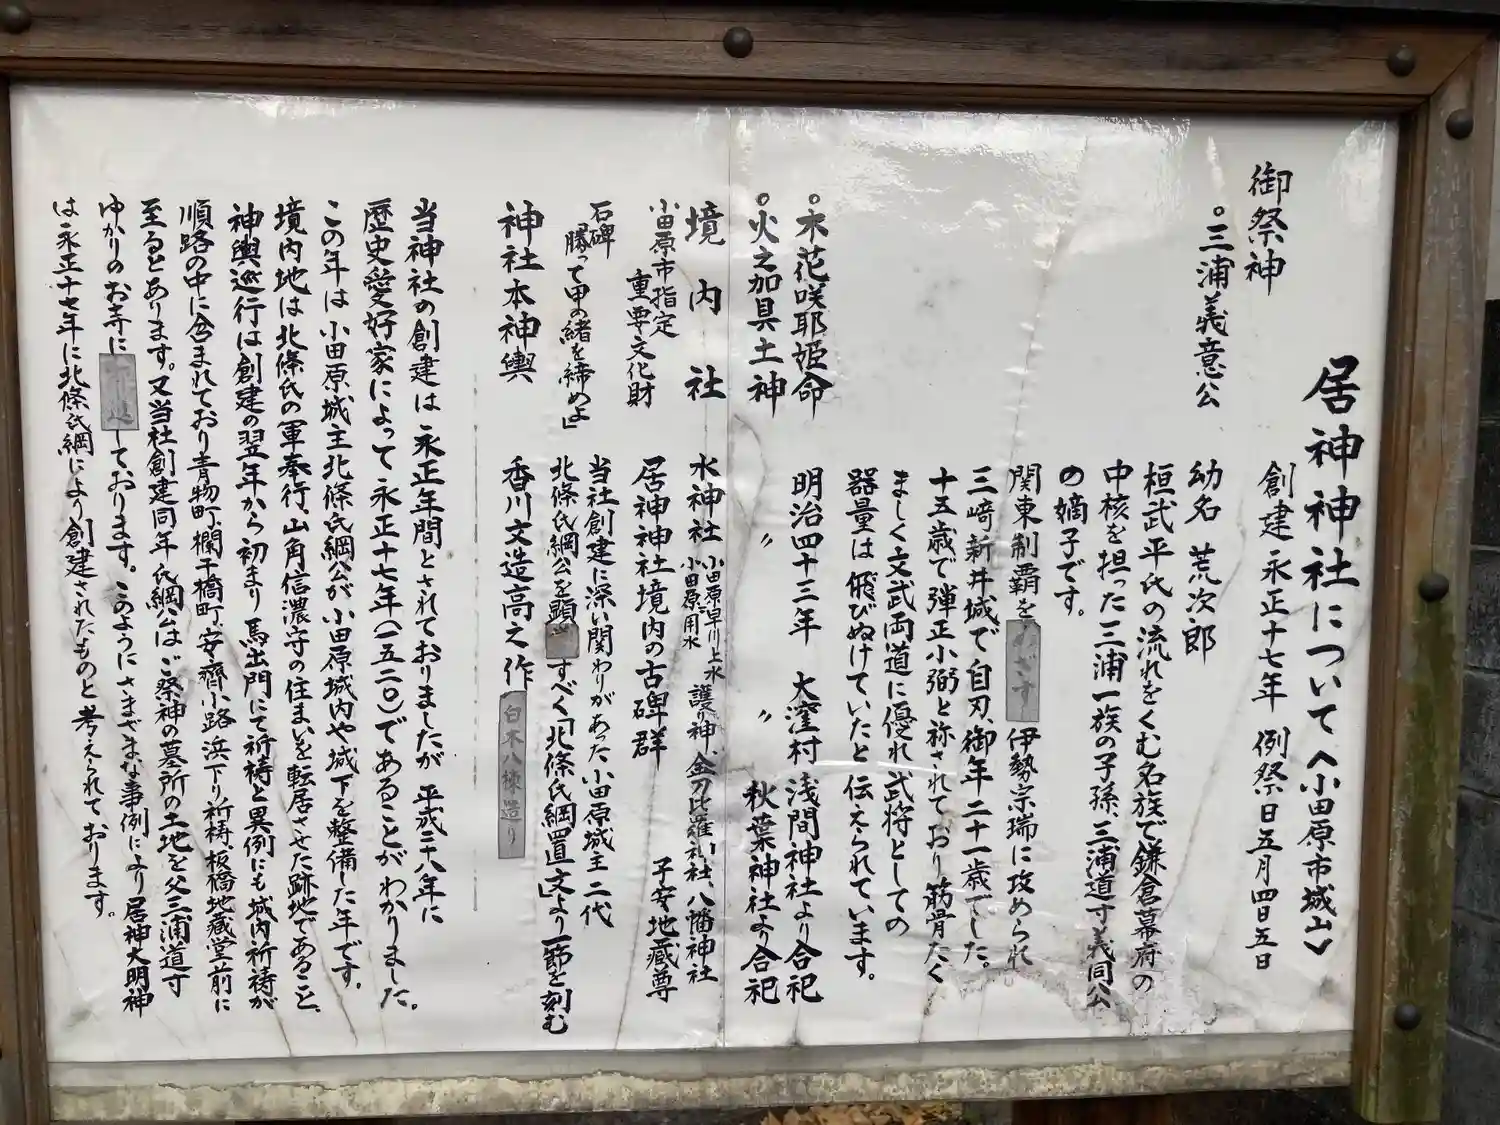 居神神社について〈小田原市城山〉
御祭神
創建 永正十七年 例祭日五月四日五日
。三浦義意公
幼名 荒次郎
桓武平氏の流れをくむ名族で鎌倉幕府の
中核を担った三浦一族の子孫、三浦道寸義同公
の嫡子です。
関東制覇をめざす伊勢宗瑞に攻められ
三崎新井城で自刃、御年二十一歳でした。
十五歳で弾正小弼と称されており筋骨たく
ましく文武両道に優れ武将としての
器量は飛びぬけていたと伝えられています。
。木花咲耶姫命
明治四十三年 大窪村 浅間神社より合祀
。火之加具土神
〃 〃 秋葉神社より合祀
境内社
水神社 小田原早川上水 小田原用水 護り神、金刀比羅神社、八幡神社
子安地蔵尊
小田原市指定
重要文化財
居神神社境内の古碑群
石碑
勝って甲の緒を締めよ」
当社創建に深い関わりがあった小田原城主二代
北條氏綱公を顕 すべく「北條氏綱置文」より一節を刻む
神社本神輿
香川文造高之作 白木八棟造り
当神社の創建は永正年間とされておりましたが平成二十八年に
歴史愛好家によって永正十七年(一五二〇)であることがわかりました。
この年は小田原城主北條氏綱公が小田原城内や城下を整備した年です。
境内地は北條氏の軍奉行、山角信濃守の住まいを転居させた跡地であること、
神輿巡行は創建の翌年から初まり馬出門にて祈祷と異例にも城内祈祷が
順路の中に含まれており青物町、欄干橋町、安齋小路浜下り祈祷、板橋地蔵堂前に
至るとあります。又当社創建同年氏綱公はご祭神の墓所の土地を父三浦道寸
ゆかりのお寺に 進しております。このようにさまざまな事例により居神大明神
は永正十七年に北條氏綱により創建されたものと考えられております。